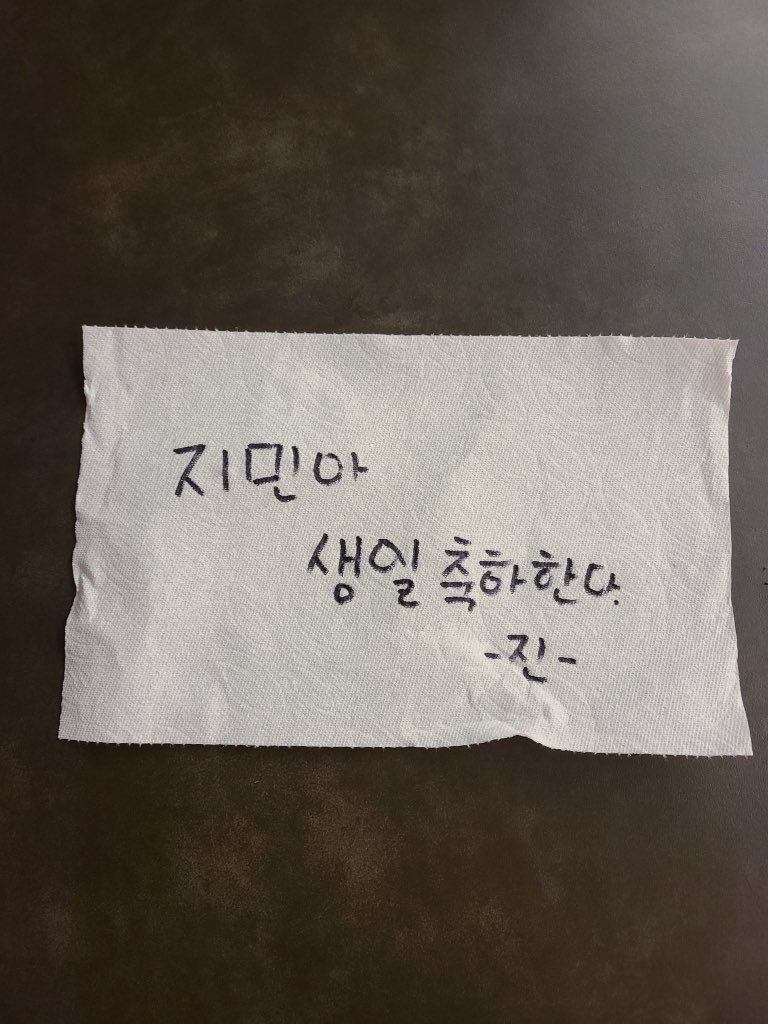 지민아
생일 축하한다.
-진-